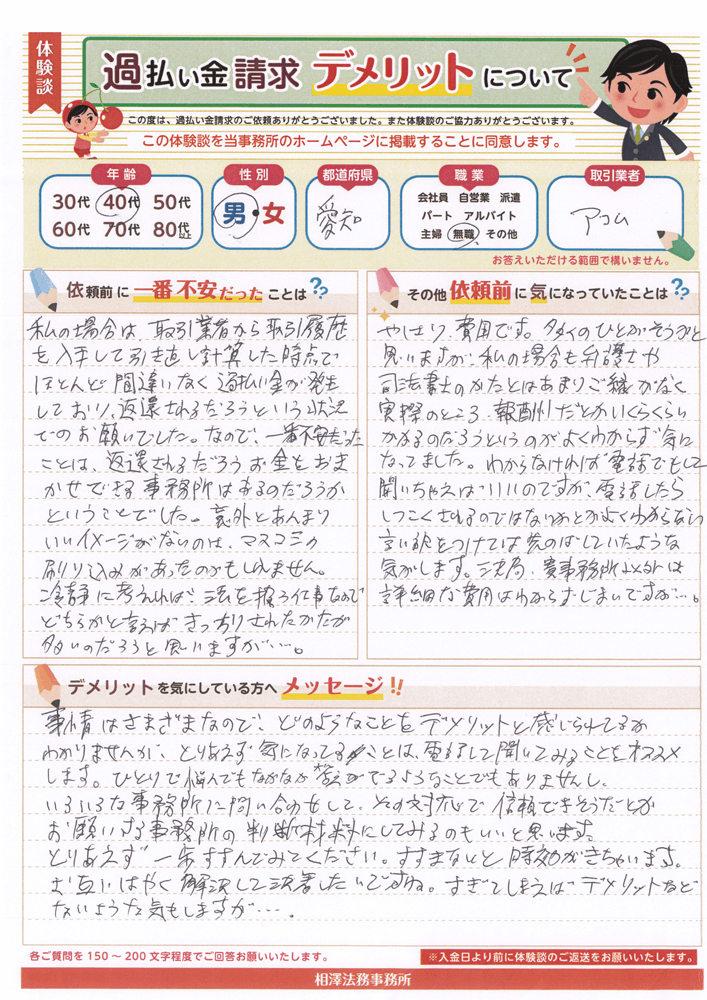 体験談
過払い金請求 デメリットについて
この度は、過払い金請求のご依頼ありがとうございました。また体験談のご協力ありがとうございます。
この体験談を当事務所のホームページに掲載することに同意します。
年齢
30代 40代 50代
60代 70代 80代以上
性別
男・女
都道府県
愛知
職業
会社員 自営業 派遣
パート アルバイト
主婦 無職 その他
取引業者
アコム
お答えいただける範囲で構いません。
依頼前に一番不安だったことは??
私の場合は、取引業者から取引履歴
を入手して引き直し計算した時点で
ほとんど間違いなく過払い金が発生
しており、返還されるだろうという状況
でのお願いでした。なので、一番不安だった
ことは、返還されるだろうお金をおま
かせできる事務所はあるのだろうか
ということでした。意外とあんまり
いいイメージがないのは、マスコミの
刷り込みがあったのかもしれません。
冷静に考えれば、法を扱う仕事なので
どちらかと言えばきっちりされたかたが
多いのだろうと思いますが…。
その他依頼前に気になっていたことは??
やはり、費用です。多くのひとがそうかと
思いますが、私の場合も弁護士や
司法書士のかたとはあまりご縁がなく
実際のところ、報酬がだとかいくらくらい
かかるのだろうというのがよくわからず気に
なってました。わからなければ電話でもして
聞いちゃえばいいのですが、電話したら
しつこくされるのではないかとかよくわからない
言い訳をつけては先のばしていたような
気がします。結局、貴事務所以外は
詳細な費用はわからずじまいですが…。
デメリットを気にしている方へメッセージ!!
事情はさまざまなので、どのようなことをデメリットと感じられてるか
わかりませんが、とりあえず気になってることは、電話して聞いてみることをオススメ
します。ひとりで悩んでもなかなか答えがでるようなことでもありませんし、
いろいろな事務所に問い合わせして、その対応で信頼できそうだとか
お願いする事務所の判断材料にしてみるのもいいと思います。
とりあえず一歩すすんでみてください。すすまないと時効がきちゃいます。
お互いはやく解決して決着したいですね。すぎてしまえばデメリットなど
ないような気もしますが…。
各ご質問を150～200文字程度でご回答お願いいたします。
※入金日より前に体験談のご返送をお願いいたします。
相澤法務事務所